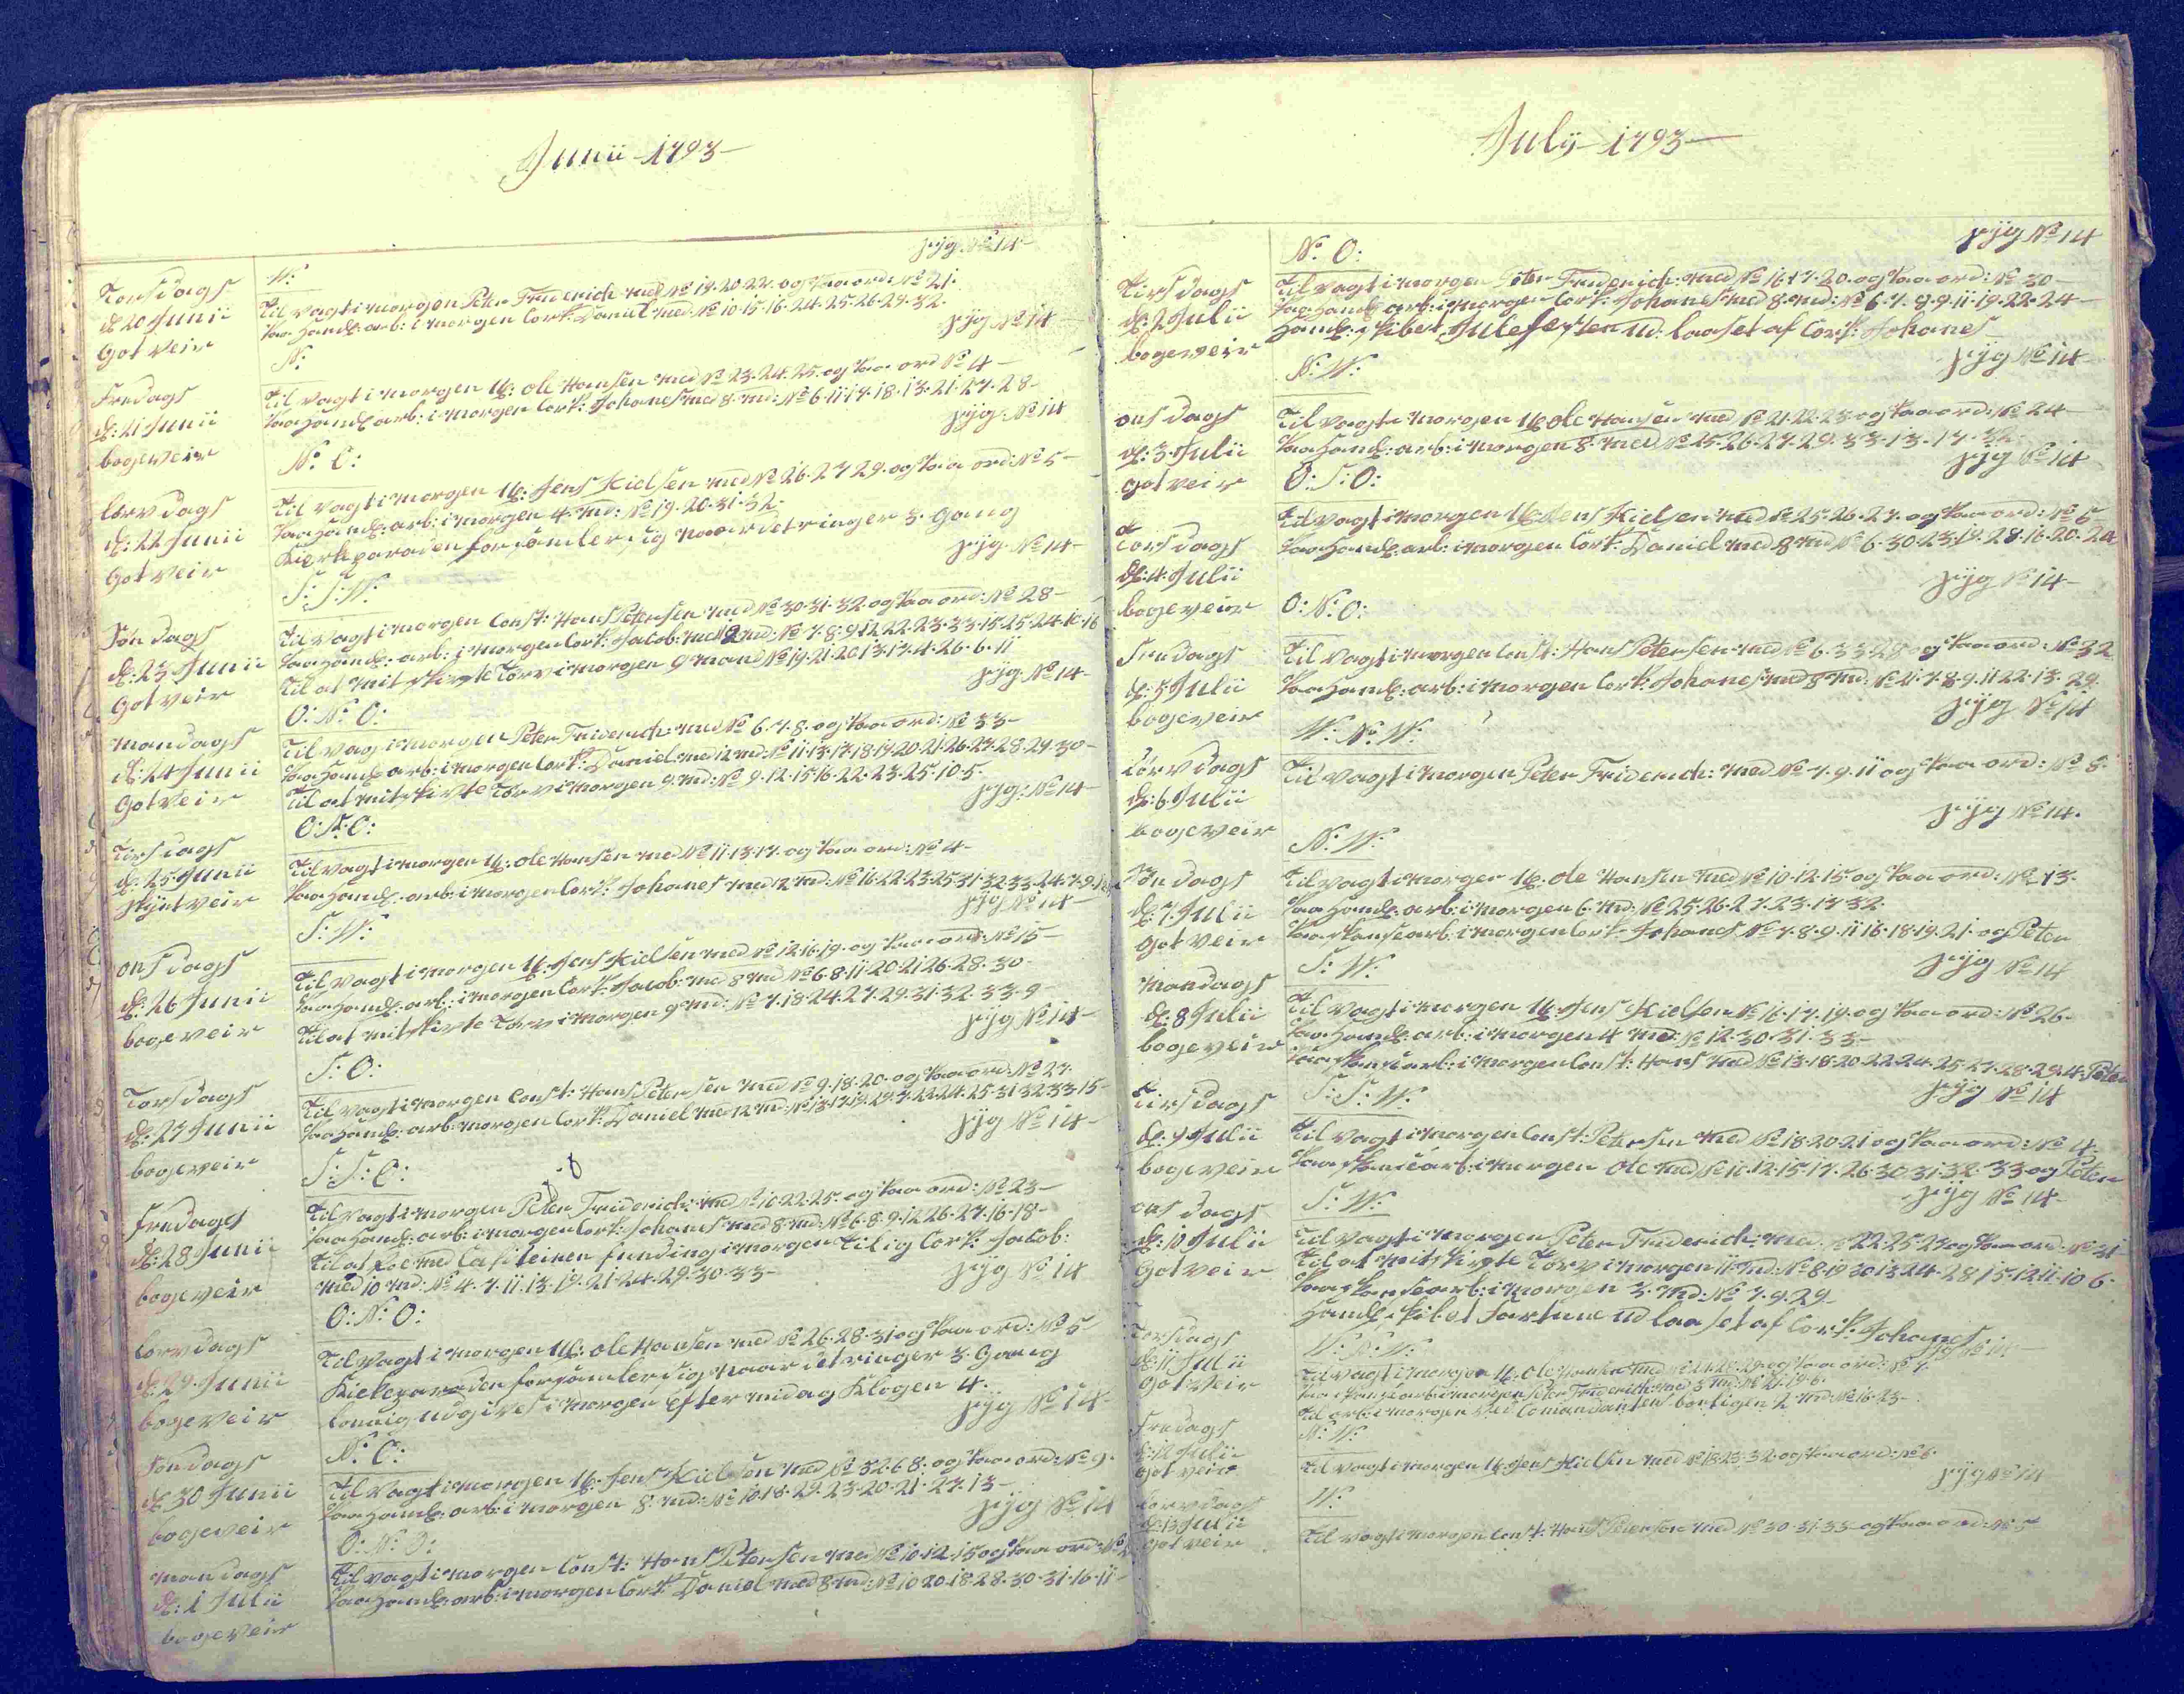 Junii 1793
Torsdags
d: 20 Junii
Got Veir
W:
syg No 14
Til vagt i morgen Peter Friderich med No 19. 20. 22. og paa ord: No 21.
Paa Hand: arb: i morgen Corp: Daniel med: No 10. 15. 16. 24. 25. 26. 29. 32.
syg No 14
Fredags
d: 21 Junii
bogeveir
N:
Til vagt i morgen U: Ole Hansen med No 23. 24. 25. og paa ord No 4
Paa Hand: arb: i morgen Corp: Johanes med 8. md: No 6. 11. 17. 18. 13. 21. 27. 28
syg: No 14
Lørvdags
d: 22 Junii
Got Veir
N: O:
Til vagt i morgen U: Jens Kielsen med No 26. 27 29. og paa ord: No 5
Paa Hand: arb: i morgen 4. md: No 19. 20. 31. 32.
Kierkparaden forsamler sig naar det ringer 3. Gang
syg No 14
Søndags
d: 23 Junii
Got Veir
S: S: W:
Til vagt i morgen Const: Hans Petersen med No 30. 31. 32. og paa ord: No 28
Til at mit skirte Tørv i morgen 9 mand No 19. 21. 20 13. 17. 4. 26. 6. 11
syg No 14
Mandags
d: 24 Junii
Got Veir
O: N: O:
Til vag i morgen Peter Friderich: med No 6. 7. 8. og paa ord: No 33
Paa Hand: arb: i morgen Corp: Daniel med 12 md: No 11. 13. 17. 18. 19 20. 21. 26. 27. 28. 29. 30
Til at mit skirte Tørv i morgen 9. md: No 9. 12. 15 16. 22. 23. 25. 10. 5.
syg: No 14
Tirsdags
d: 25 Junii
skynt veir
O: N: O:
Til vagt i morgen U: Ole Hansen med No 11. 13. 17. og paa ord: No 4
Paa Hand: arb: i morgen Corp: Johanes med 12 md: No 16. 22. 23. 25. 31. 32 33. 24. 7. 9.
syg No 14
Onsdags
d: 26 Junii
bogeveir
S: W:
Til vagt i morgen U: Jens Kielsen med No 12. 16. 19. og paa ord: No 15
Paa Hand: arb: i morgen Corp: Jacob: med 8 md No 6. 8. 11. 20. 21 26. 28. 30
Til at mit skirte Tørv i morgen 9 md: No 7. 18. 24. 27. 29. 31. 32. 33. 9
syg No 14
Torsdags
d: 27 Junii
bogeveir
S: O:
Til vagt i morgen Const: Hans Petersen med No 9. 18. 20. og paa ord: No 27.
Paa Hand: arb: i morgen Corp: Daniel med 12 md:
syg No 14
Fredags
d: 28 Junii
bogeveir
S: S: O:
Til vagt i morgen Peter Friderich: med No 10. 22. 25. og paa ord: No 23
Paa Hand: arb: i morgen Corp: Johanes med 8. md: No 6. 8. 9. 12 26. 27. 16. 18
Til at Roe med Capiteinen funding i morgen Tilig Corp: Jacob:
med 10 md: No 4. 7. 11. 13. 19. 21. 24. 29. 30. 33
syg No 14
Lørvdags
d: 29. Junii
bogeveir
O: N: O:
Til vagt i morgen U: Ole Hansen med No 26. 28. 31 og paa ord: No 5
Kiekeparaden forsamler sig naar det ringer 3. Gang
Lønnig udgives i morgen Efter midag Klogen 4.
syg No 14
Søndags
d: 30 Junii
bogeveir
N: O:
Til vagt i morgen U: Jens Kielsen med No 32. 6. 8. og paa ord: No 9.
Paa Hand: arb: i morgen 8. md: No 10. 18. 29. 23. 20. 21. 27. 13
syg No 14
Mandags
d: 1 Julii
bogeveir
O: N: O:
Til vagt i morgen Const: Hans Petersen med No 10. 12. 15 og paa ord:
Paa Hand: arb: i morgen Corp: Daniel med 8 md: No 10 20. 18. 28. 30. 31. 16. 11
July 1793
Tirsdags
d: 2 Julii
bogeveir
N: O:
syg No 14
Til vagt i morgen Peter Friderich: med No 16. 17. 20. og paa ord: No 30
Paa Hand: arb: i morgen Corp: Johanes med 8. md: No 6. 7. 9. 11. 19. 22. 24
Hand: skibet Julefesten ud laaset af Corp: Johanes
syg No 14
Onsdags
d: 3. Julii
got veir
N: W:
Til vagt i morgen U: Ole Hansen med No 21. 22. 23 og paa ord: No 24
Paa Hand: arb: i morgen 8. med No 25. 26. 27. 29. 33. 13. 17. 32
syg No 14
Torsdags
d: 4. Julii
bogeveir
O: S: O:
Til vagt i morgen U: Jens Kielsen med No 25. 26. 27. og paa ord: No 5
Paa Hand: arb: i morgen Corp: Daniel med 8 md No 6. 30. 23. 19. 28. 16. 20. 24
syg No 14
Fredags
d: 5 Julii
bogeveir
O: N: O:
Til vagt i morgen Const: Hans Petersen med No 6. 33. 28 og paa ord: No 32
Paa Hand: arb: i morgen Corp: Johanes med 8 md: No 21. 7. 8. 9. 11 22. 13. 29.
syg No 14
Lørvdags
d: 6 Julii
bogeveir
W: N: W:
Til vagt i morgen Peter Friderich: med No 7. 9. 11 og paa ord: No 8.
syg No 14.
Søndags
d: 7. Julii
got veir
N: W:
Til vagt i morgen U: Ole Hansen med No 10. 12. 15 og paa ord: No 13.
Paa Hand: arb: i morgen 6. md: No 25. 26. 27. 23. 17 32
Paa skanse arb: i morgen Corp: Johanes No 7. 8. 9. 11 16. 18. 19. 21. og Peter
syg No 14
Mandags
d: 8 Julii
bogeveir
S: W:
Til vagt i morgen U: Jens Kielsen No 16. 17. 19. og paa ord: No 26
Paa Hand: arb: i morgen 4 md: No 12. 30. 31. 33
Paa skanse arb: i morgen Const: Hans med No 13. 18. 20 22. 24. 25. 27. 28. 29. 4. Peter
syg No 14
Tirsdags
d: 9 Julii
bogeveir
S: S: W:
Til vagt i morgen Const: Petersen med No 18. 20. 21 og paa ord: No 4
Paa skanse arb: i morgen Ole med No 10. 12. 15. 17. 26. 30 31. 32. 33 og Peter
syg No 14
Onsdags
d: 10 Julii
Got veir
S: W:
Til vagt i morgen Peter Friderich: med No 22. 25. 27 og paa ord: No 31
Til at mit skirte Tørv i morgen 11 md: No 8. 19 30 13 24. 28 15. 12. 11. 10 6
Paa skanse arb: i morgen 3. md: No 7. 9. 29
Hand: skibet Fortune ud laaset af Corp: Johanes
Torsdags
d: 11 Julii
got veir
Til vagt i morgen U: Ole Hansen med og paa ord:
Paa skanse arb: i morgen Peter Friderich: med 3 md:
Til arb: i morgen ved Comandanten boeligen 2 md No 16. 23
Fredags
d: 12 Julii
got veir
N: W:
Til vagt i morgen U: Jens Kielsen med No 18. 23. 32. og paa ord: No 6.
syg No 14
Lørvdags
d: 13 Julii
got veir
W:
Til vagt i morgen Const: Hans Petersen med No 30. 31. 33 og paa ord: No 5